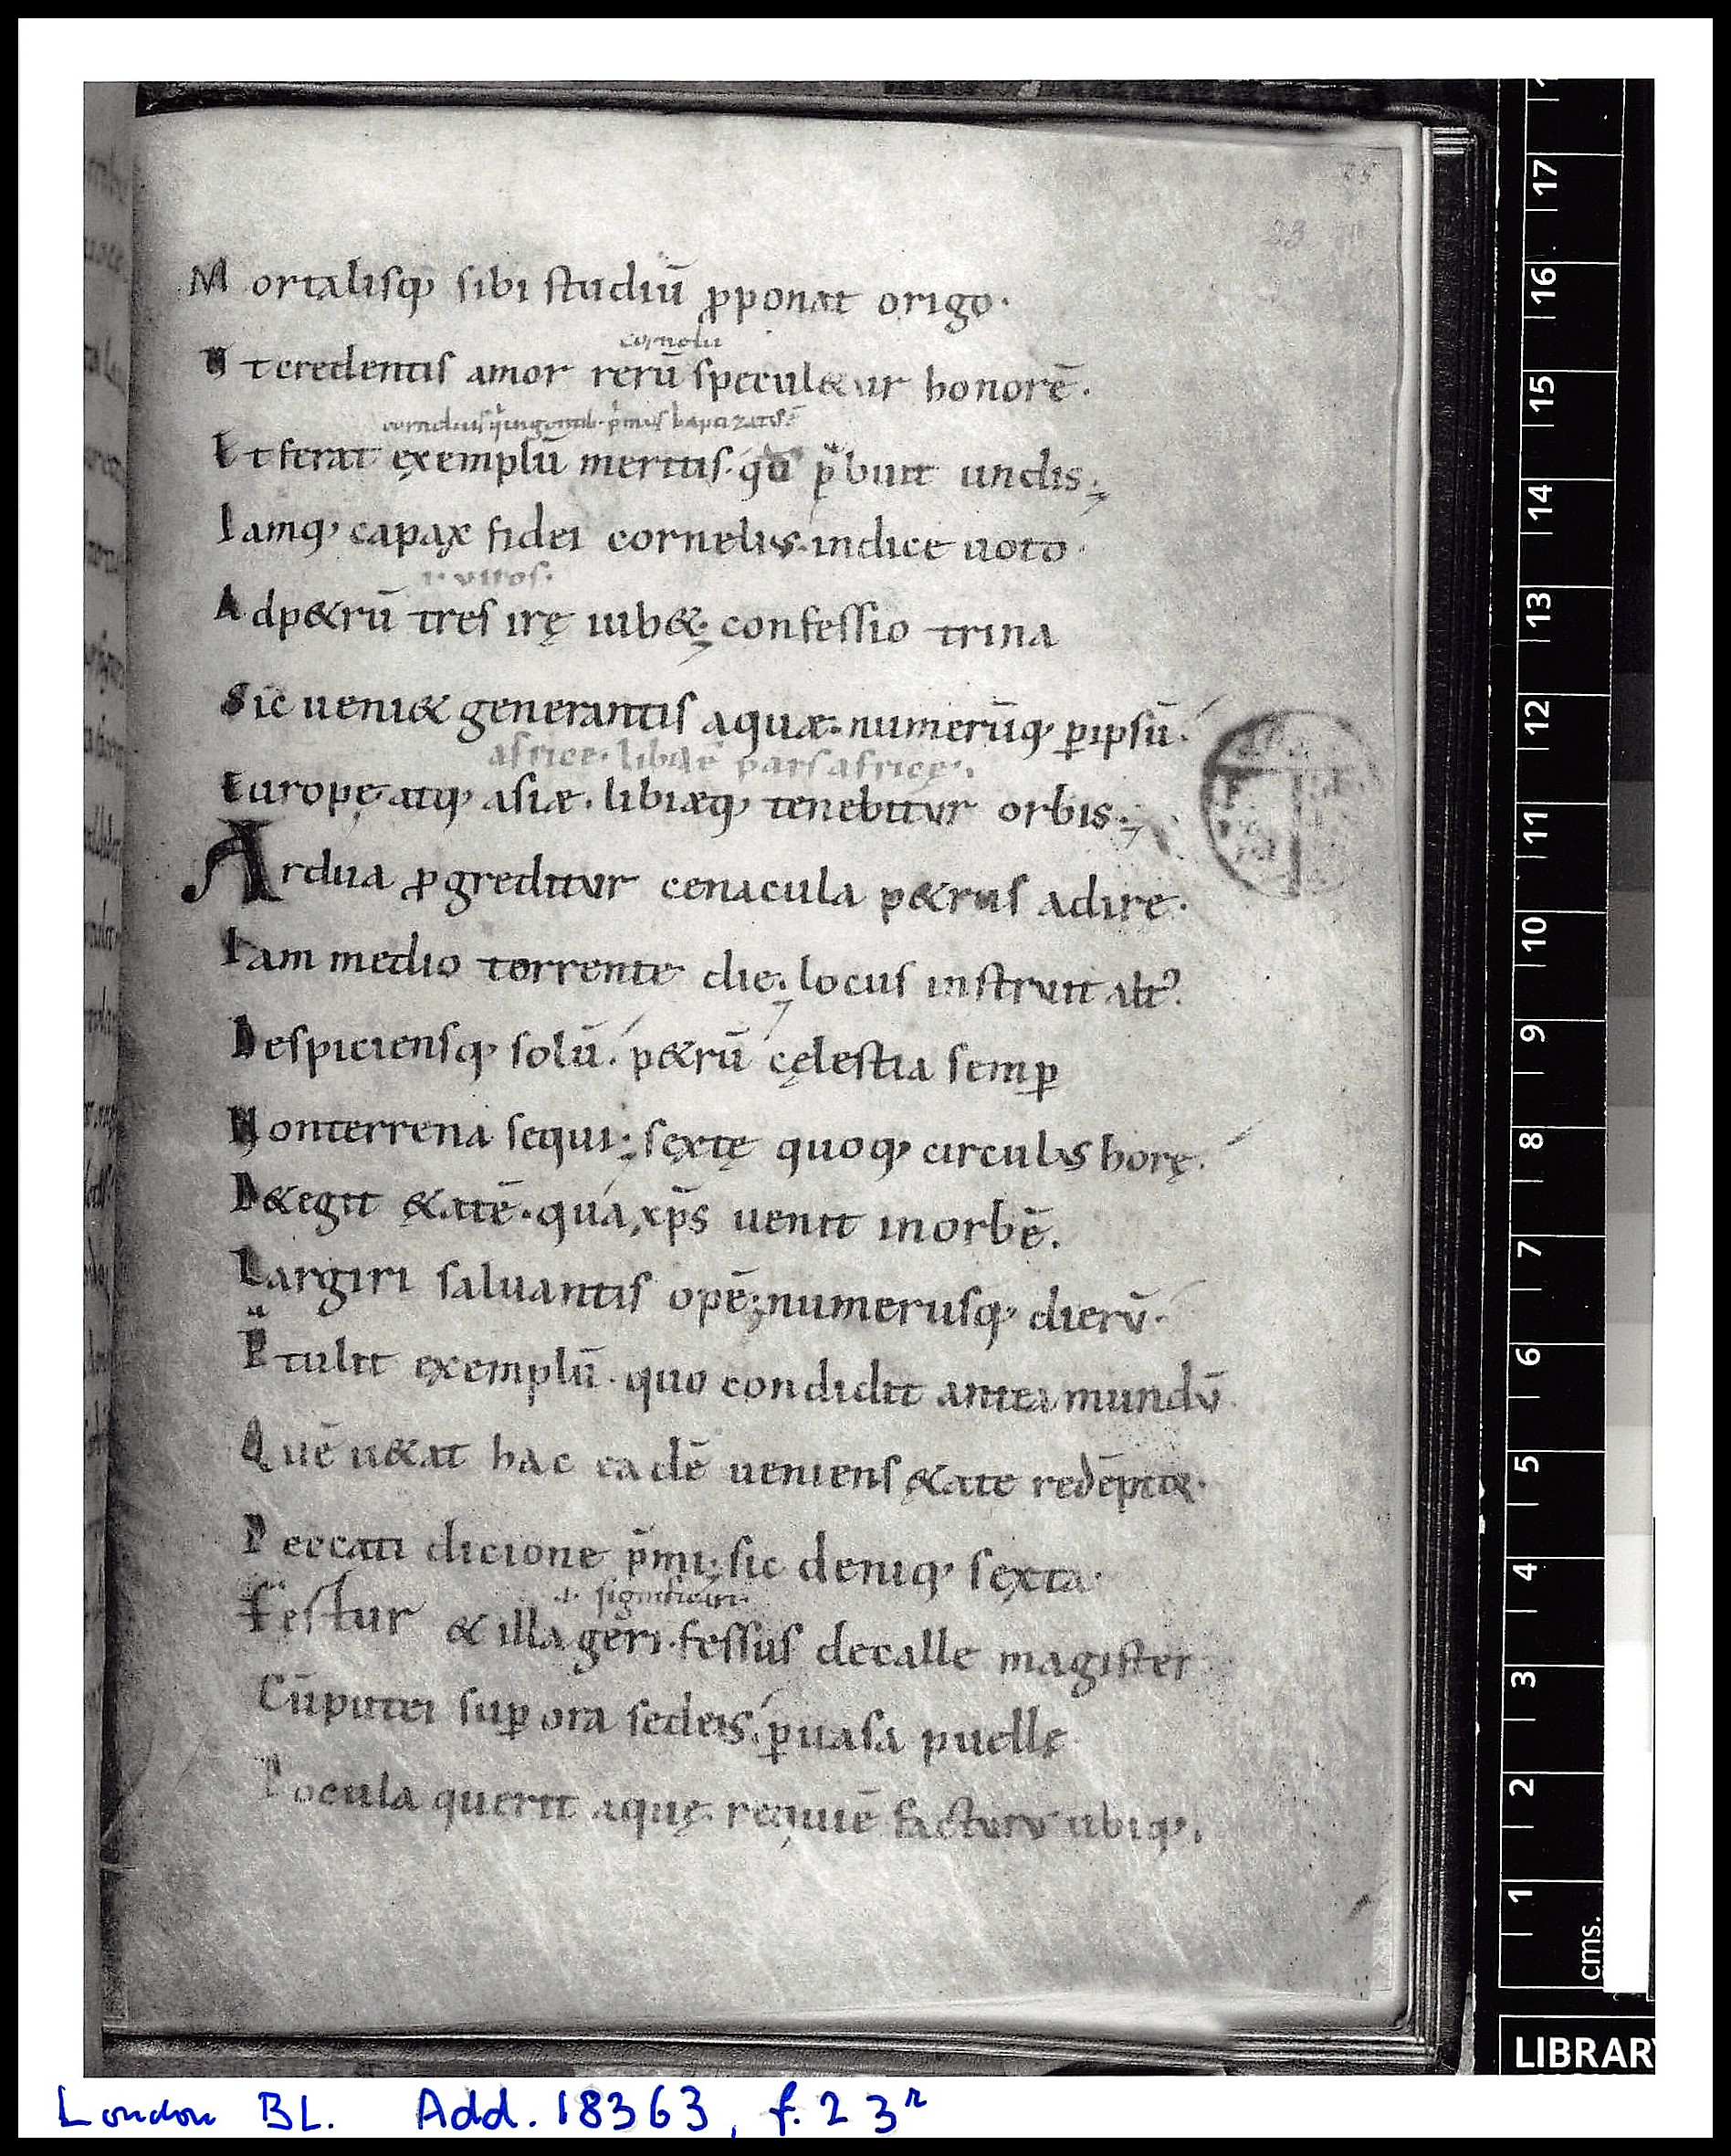 25
23
M ortalisq; sibi studiū ꝓponat origo.
cornelii
V t credentis amor rerū specul&ur honorē.
cornelius q̇ in gentib. p̄mus baptizat' ē
Et ferat exemplū meritis. p̄buit undis;
Iamq; capax fidei cornelius. indice uoto.
.i. uiros.
Ad p&rū tres ire iub&; confessio trina
Sic ueni& generantis aquæ: numerūq; ꝑ ipsū.
africe. pars africę.
Europę atq; asiæ. libiæq; tenebitur orbis;
Ardua ꝓgreditur cenacula p&rus adire.
Iam medio torrente die. locus instruit alt'.
Despiciensq; solū. p&rū cęlestia semꝑ
Non terrena sequi; sextę quoq; circulus horę.
D&egit &atē. qua xp̄s uenit in orbē.
Largiri saluantis opē; numerusq; dierū.
Ētulit exemplū. quo condidit antea mundū
Quē u&at hac eadē ueniens &ate redēptor.
Peccati dicione p̄mi; sic deniq; sexta.
.i. significari.
Festur & illa geri. fessus de calle magister
Cū putei suꝑ ora sedens. ꝑ uasa puellę
Pocula querit aquę. requiē facturus ubiq;.
17
16
15
14
13
12
11
10
9
8
7
6
5
4
3
2
1
cms.
LIBRAR
London BL. Add. 18363, f. 23r